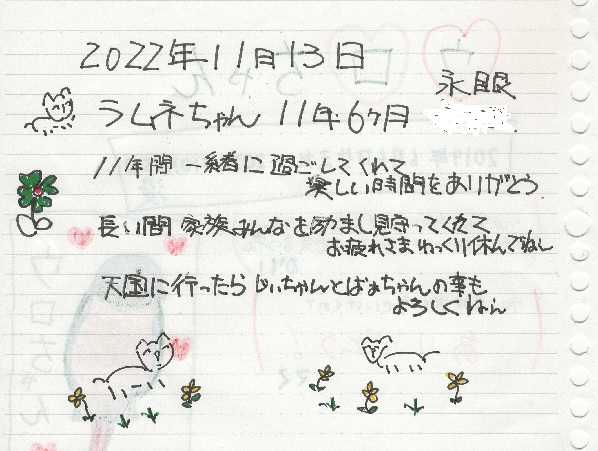 2022年11月13日
永眠
ラムネちゃん 11年6ヶ月
11年間 一緒に過ごしてくれて
楽しい時間をありがとう
長い間 家族みんなを励まし見守ってくれて
お疲れさま ゆっくり休んでね
天国に行ったら じいちゃんとばぁちゃんの事も
よろしくねぇ